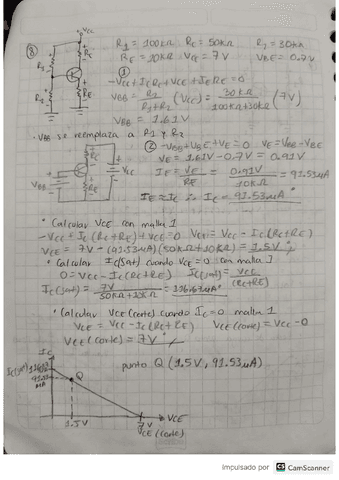 8
+VCC
R2
RC
R1
RE
R1 = 100KΩ RC = 50KΩ R2 = 30KΩ
RE = 10KΩ VCC = 7V VBE = 0.7V
1
-VCC + ICRC + VCE + ICRE = 0
VBB = (VCC) = 30KΩ / 100KΩ+30KΩ (7V)
VBB = 1.61V
· VBB se reemplaza a R1 y R2
2 -VBB+VBE+VE=0 VE=VBB-VBE
VE = 1.61V - 0.7V = 0.91V
IE = VE / RE = 0.91V / 10KΩ = 91.53μA
IE ≈ IC ∴ IC = 91.53μA
RC
VCC
VBB
RE
· Calcular VCE con malla 1
-VCC + IC(RC+RE)+VCE=0 VCE = VCC - IC(RC+RE)
VCE = 7V - (91.53μA)(50KΩ+10KΩ) = 1.5V
· Calcular IC(sat) cuando VCE=0 con malla 1
0 = VCC - IC(RC+RE) IC(sat) = VCC / (RC+RE)
IC(sat) = 7V / 50KΩ+10KΩ = 116.67μA
· Calcular VCE(corte) cuando IC=0 malla 1
VCE = VCC - IC(RC+RE) VCE(corte) = VCC - 0
VCE(corte) = 7V
punto Q (1.5V, 91.53μA)
IC
IC(sat)
91.53
μA
Q
1.5V
7V
VCE
VCE(corte)
Impulsado por CS CamScanner